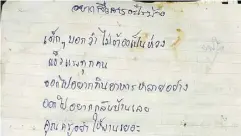 อยากสื่อสารอะไรบ้าง
เด็กๆบอกว่าไม่ต้องเป็นห่วง
แข็งแรงทุกคน
อยากกินอาหารหลายอย่าง
อยากกลับบ้านเลย
คุณครูอย่าใช้งานเยอะ